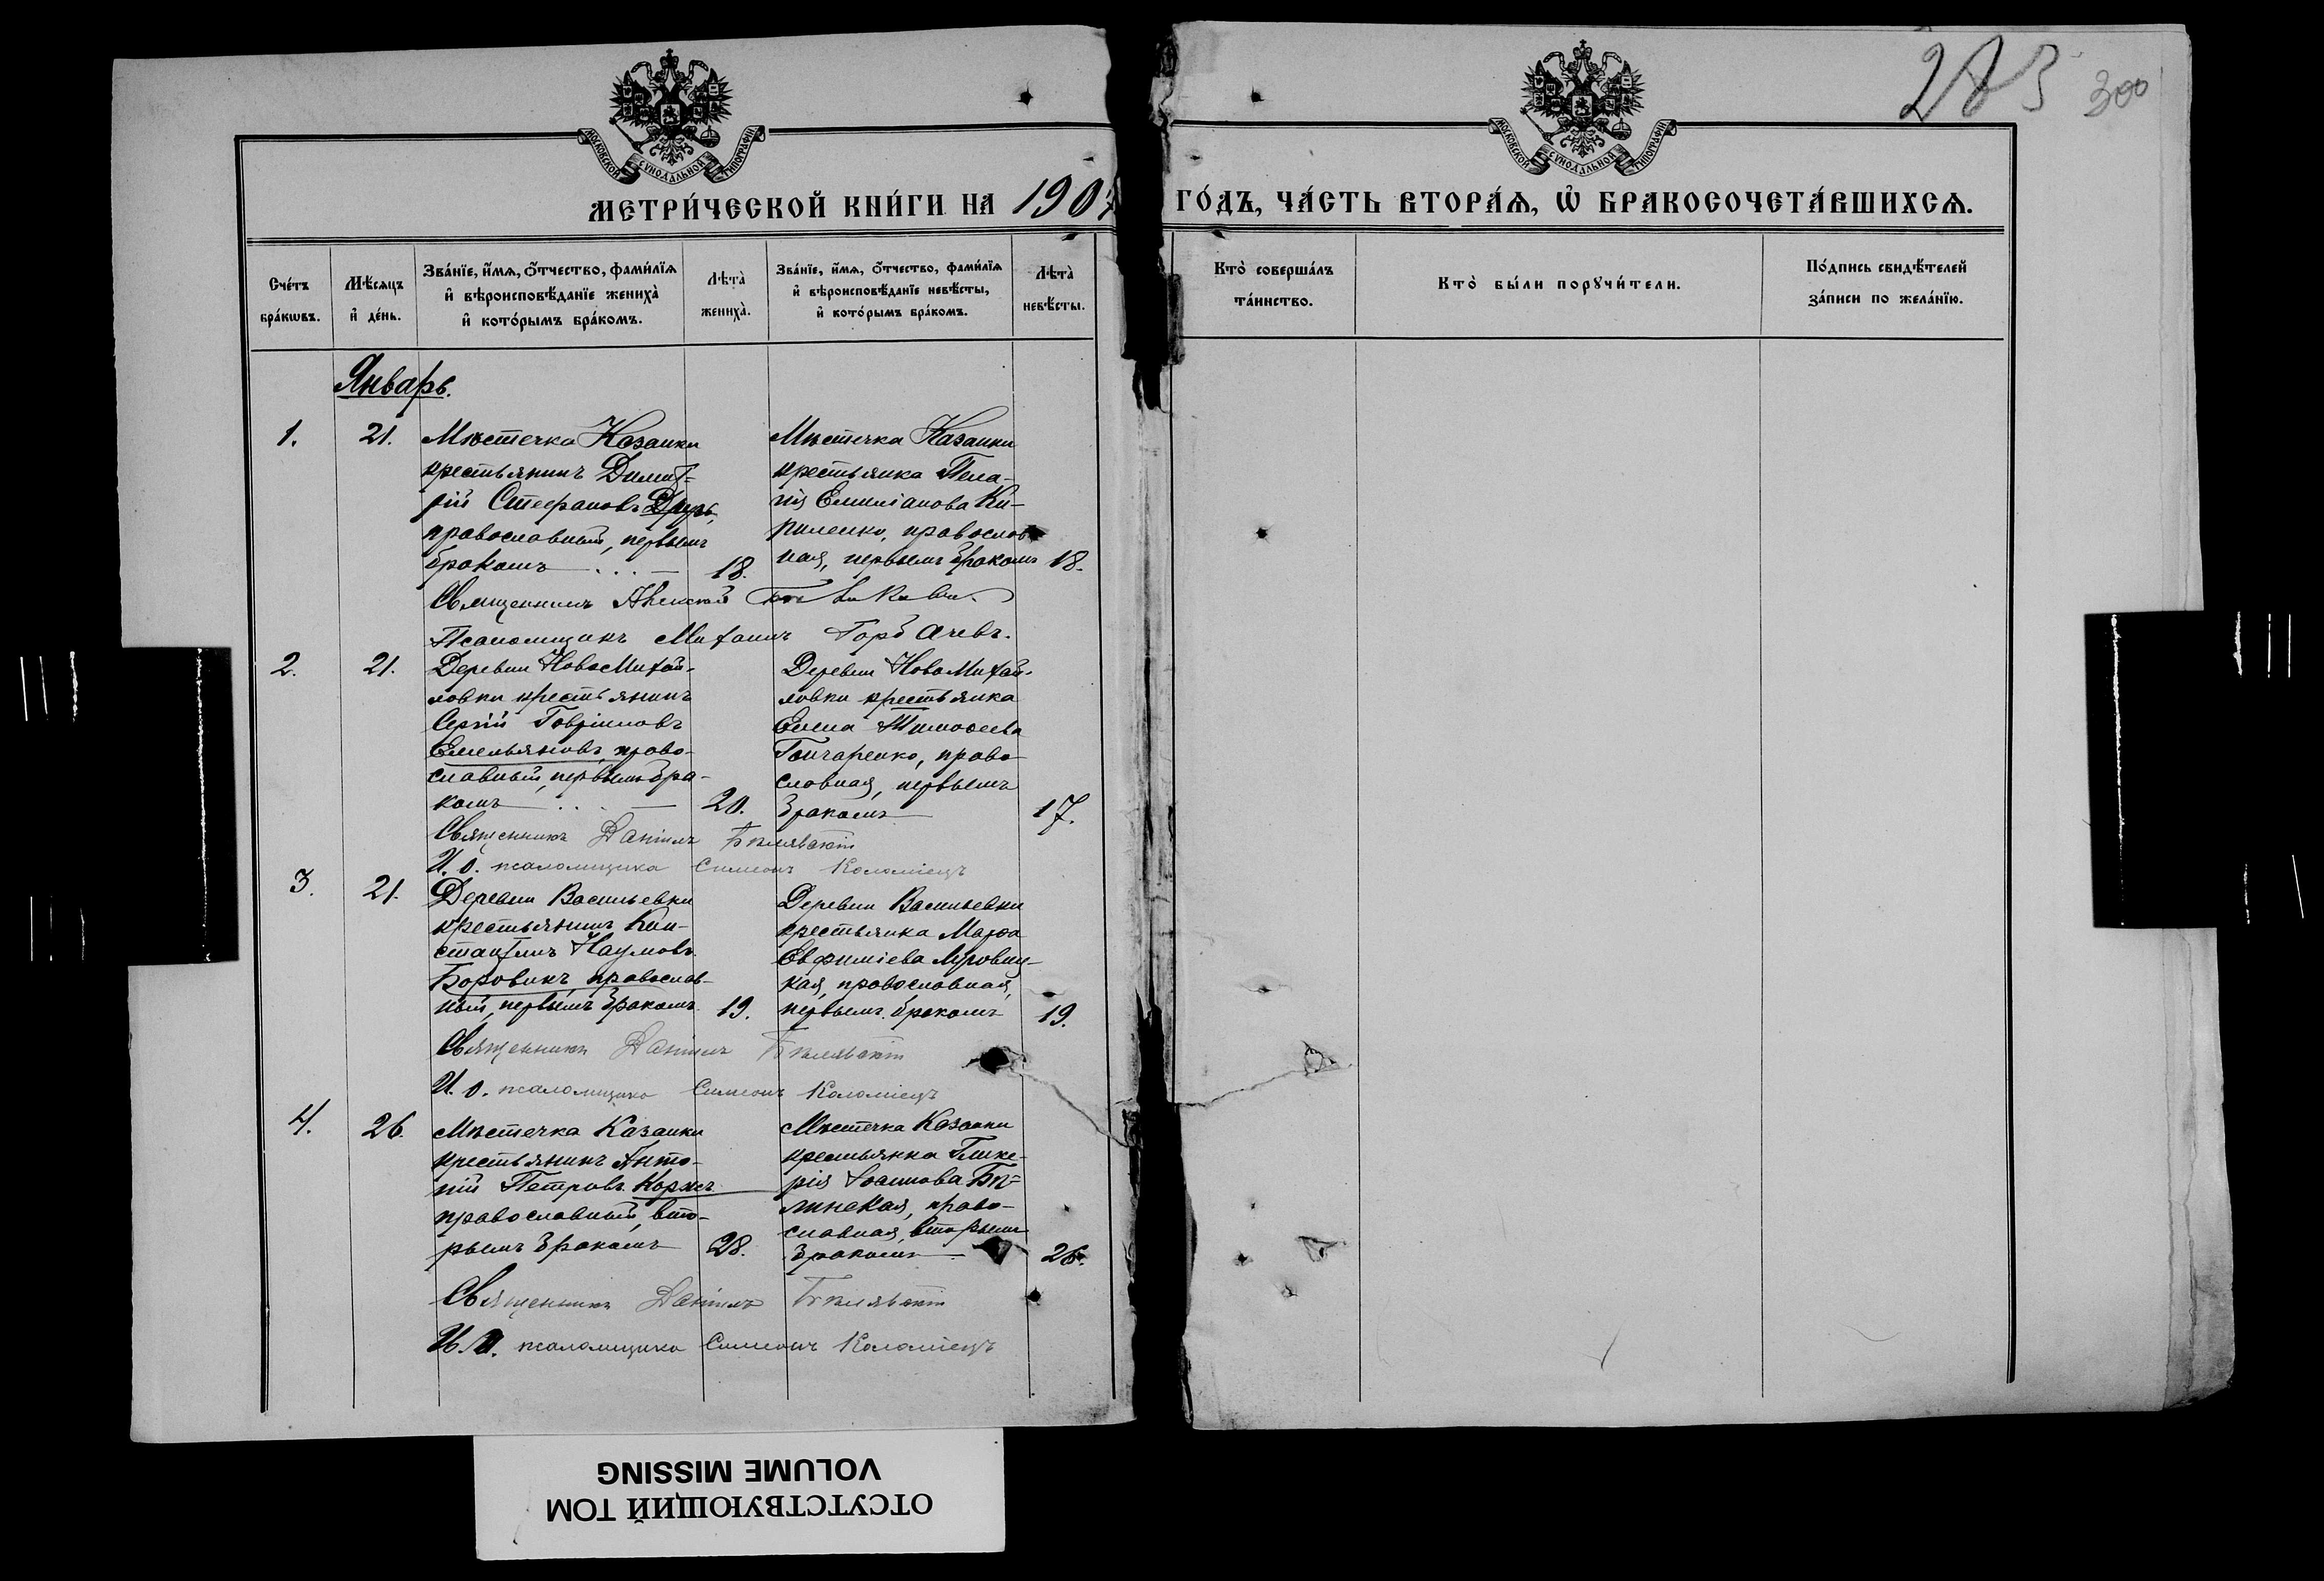 283 300
МОСКОВСКОЙ СѴНОДАЛЬНОЙ ТИПОГРАФІИ
МОСКОВСКОЙ СѴНОДАЛЬНОЙ ТИПОГРАФІИ
МЕТРИ́ЧЕСКОЙ КНИ́ГИ НА 1907 ГО́ДЪ, ЧА́СТЬ ВТОРА́Ѧ, Ѡ БРАКОСОЧЕТА́ВШИХСѦ.
Сче́тъ бра́кѡвъ.
Мѣ́сѧцъ и҆ де́нь.
Зва́нїе, и҆́мѧ, ѻ҆́тчество, фами́лїѧ
и҆ вѣроисповѣ́данїе жениха̀
и҆ кото́рымъ бра́комъ.
Лѣта̀ жениха̀.
Зва́нїе, и҆́мѧ, ѻ҆́тчество, фами́лїѧ
и҆ вѣроисповѣ́данїе невѣ́сты,
и҆ кото́рымъ бра́комъ.
Лѣта̀ невѣ́сты.
Кто̀ соверша́лъ та́инство.
Кто̀ бы́ли порꙋчи́тели.
По́дпись свидѣ́телей
за́писи по жела́нїю.
Январь.
1. 21.
Мѣстечка Казанки
крестьянинъ Димит-
рій Стефановъ Друзь,
православный, первымъ
бракомъ 18.
Мѣстечка Казанки
крестьянка Пела-
гія Емиліанова Ки-
риленко, православ
ная, первымъ бракомъ 18.
Священникъ
Псаломщикъ Михаилъ Горбачевъ.
2. 21.
Деревни НовоМихай-
ловки крестьянинъ
Сергій Гавріиловъ
Емельяновъ, право-
славный, первымъ бра-
комъ 20.
Деревни НовоМихай-
ловки крестьянка
Елена Тимоѳеева
Гончаренко, право
славная, первымъ
бракомъ 17.
Священникъ Даніилъ Бѣлявскій
И. о. псаломщика Симеонъ Коломіецъ
3. 21.
Деревни Васильевки
крестьянинъ Кон-
стантинъ Наумовъ
Боровикъ, православ-
ный, первымъ бракомъ 19.
Деревни Васильевки
крестьянка Марѳа
Евфиміева
кая, православная,
первымъ бракомъ 19.
Священникъ Даніилъ Бѣлявскій
И. о. псаломщика Симеонъ Коломіецъ
4. 26.
Мѣстечка Казанки
крестьянинъ Анто-
ній Петровъ Коржъ
православный, вто-
рымъ бракомъ 28.
Мѣстечка Казанки
крестьянка Глике-
рія Іоаннова Бѣ-
линская, право-
славная, вторымъ
бракомъ 26.
Священникъ Даніилъ Бѣлявскій
И. о. псаломщика Симеонъ Коломіецъ
ОТСУТСТВУЮЩИЙ ТОМ
VOLUME MISSING